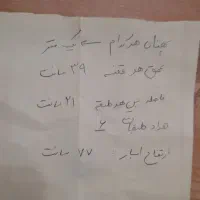 پهنای هر کدام یک متر
عمق هر قفسه ۳۹ سانت
فاصله بین هر طبقه ۲۱ سانت
تعداد طبقات ۶
ارتفاع انبار ۷۷ سانت